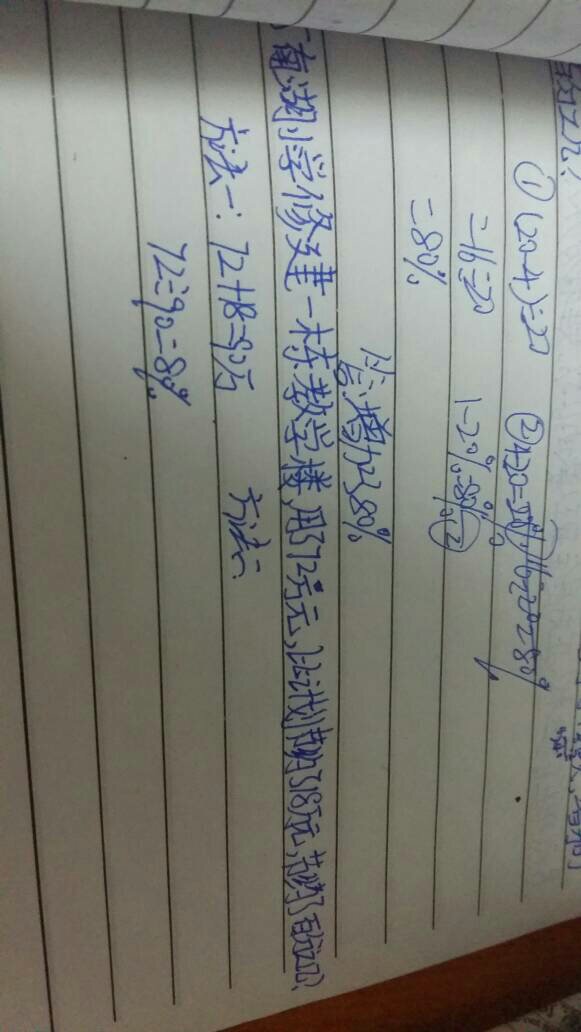 分之几?
① (20-4)÷20 ② 4÷20=20% 16÷20=80%
=16÷20 1-20%=80%
=80%
答:增加了380%
南湖小学修建一栋教学楼,用了72万元,比计划节约了18万元,节约了百分之几?
方法一: 72+18=90万 方法二:
72÷90=80%